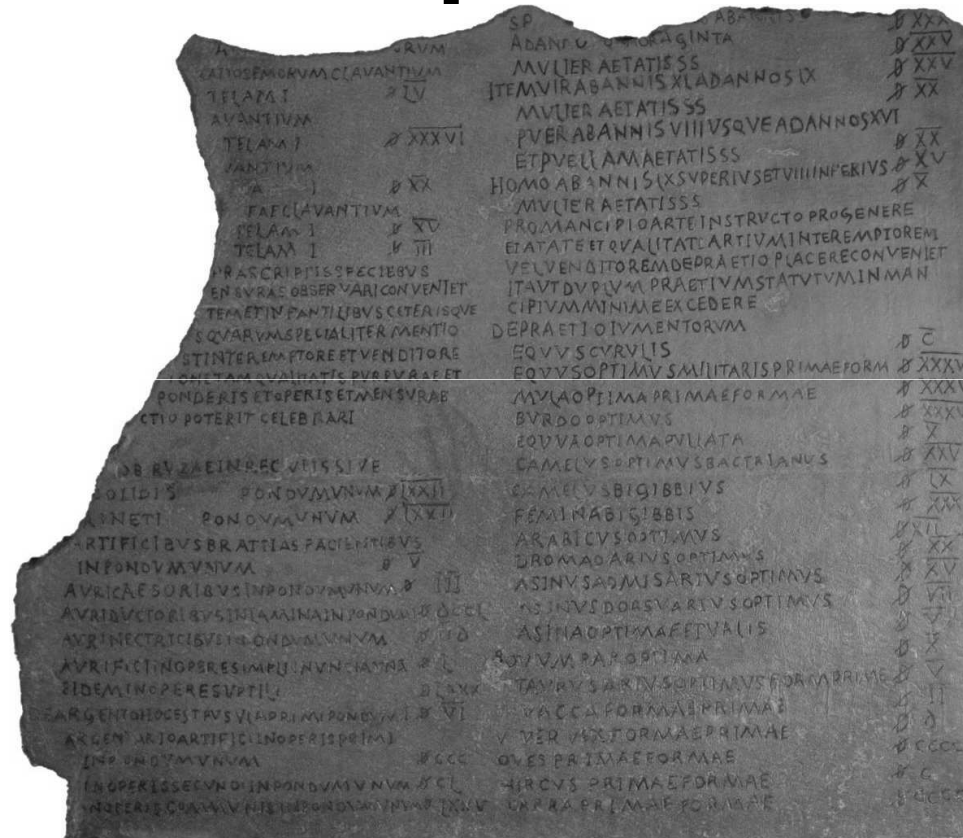 RVM
CLAVANTIVM
TELAM I 𐆖 LV
AVANTIVM
TELAM I 𐆖 XXXVI
VANTIVM
I 𐆖 XX
CLAVANTIVM
TELAM I 𐆖 XV
TELAM I 𐆖 III
PRASCRIPTISSPECIEBVS
ENSVRASOBSERVARICONVENIET
TEMETINFANTILIBVSCETERISQVE
SQVARVMSPECIALITERMENTIO
STINTEREMPTOREETVENDITORE
ONETAMQVALITATISPVRPVRAEET
PONDERISETOPERISETMENSVRAE
CTIO POTERIT CELEBRARI
OBRVZAEINREC
SOLIDIS PONDVMVNVM 𐆖 LXXII
NETI PONDVMVNVM 𐆖 LXXII
ARTIFICIBVSBRATTIASFACIENTIBVS
INPONDVMVNVM 𐆖 V
AVRICAESORIBVSINPONDVMVNVM 𐆖 III
AVRIDVCTORIBVSINLAMINAINPONDVM
AVRINECTRICIBVSINPONDVMVNVM
AVRIFICIINOPERESIMPLI
EIDEMINOPERESVPTILI 𐆖 LXXX
𐆖 VI
ARGENTARIOARTIFICIINOPERISPRIMI
INPONDVMVNVM 𐆖 CCC
INOPERISSECVNDIINPONDVMVNVM 𐆖 CL
INOPERISCOMMVNISINPONDVMVNVM 𐆖 LXXV
𐆖 XXX
𐆖 XXV
MVLIERAETATISSS 𐆖 XXV
ITEMVIRABANNISXLADANNOSLX 𐆖 XX
MVLIERAETATISSS
PVERABANNISVIIIVSQVEADANNOSXVI
ETPVELLAMAETATISSS 𐆖 XX
HOMOABANNISLXSVPERIVSETVIIIINFERIVS 𐆖 XV
MVLIERAETATISSS 𐆖 X
PROMANCIPIOARTEINSTRVCTOPROGENERE
ETATATEETQVALITATEARTIVMINTEREMPTOREM
VELVENDITOREMDEPRAETIOPLACERECONVENIET
ITAVTDVPLVMPRAETIVMSTATVTVMINMAN
CIPIVMMINIMEEXCEDERE
DEPRAETIOIVMENTORVM
EQVVSCVRVLIS 𐆖 C
EQVVSOPTIMVSMILITARISPRIMAEFORM 𐆖 XXXV
MVLAOPTIMAPRIMAEFORMAE 𐆖 XXXV
BVRDOOPTIMVS 𐆖 XXXV
EQVVAOPTIMAPVLIATA 𐆖 X
CAMELVSOPTIMVSBACTRIANVS 𐆖 XXV
CAMELVSBIGIBBIVS 𐆖 LX
FEMINABIGIBBIS 𐆖 XXX
ARABICVSOPTIMVS 𐆖 XII
DROMADARIVSOPTIMVS 𐆖 XX
ASINVSADMISARIVSOPTIMVS 𐆖 XV
ASINVSDORSVARIVSOPTIMVS 𐆖 VII
ASINAOPTIMAFETVALIS 𐆖 V
BOVVMPAROPTIMA 𐆖 X
TAVRVSARIVSOPTIMVSFORMPRIME 𐆖 V
VACCAFORMAEPRIMAE 𐆖 II
VERVEXFORMAEPRIMAE
OVESPRIMAEFORMAE 𐆖 CCCC
HIRCVS PRIMAEFORMAE
CAPRAPRIMAEFORMAE